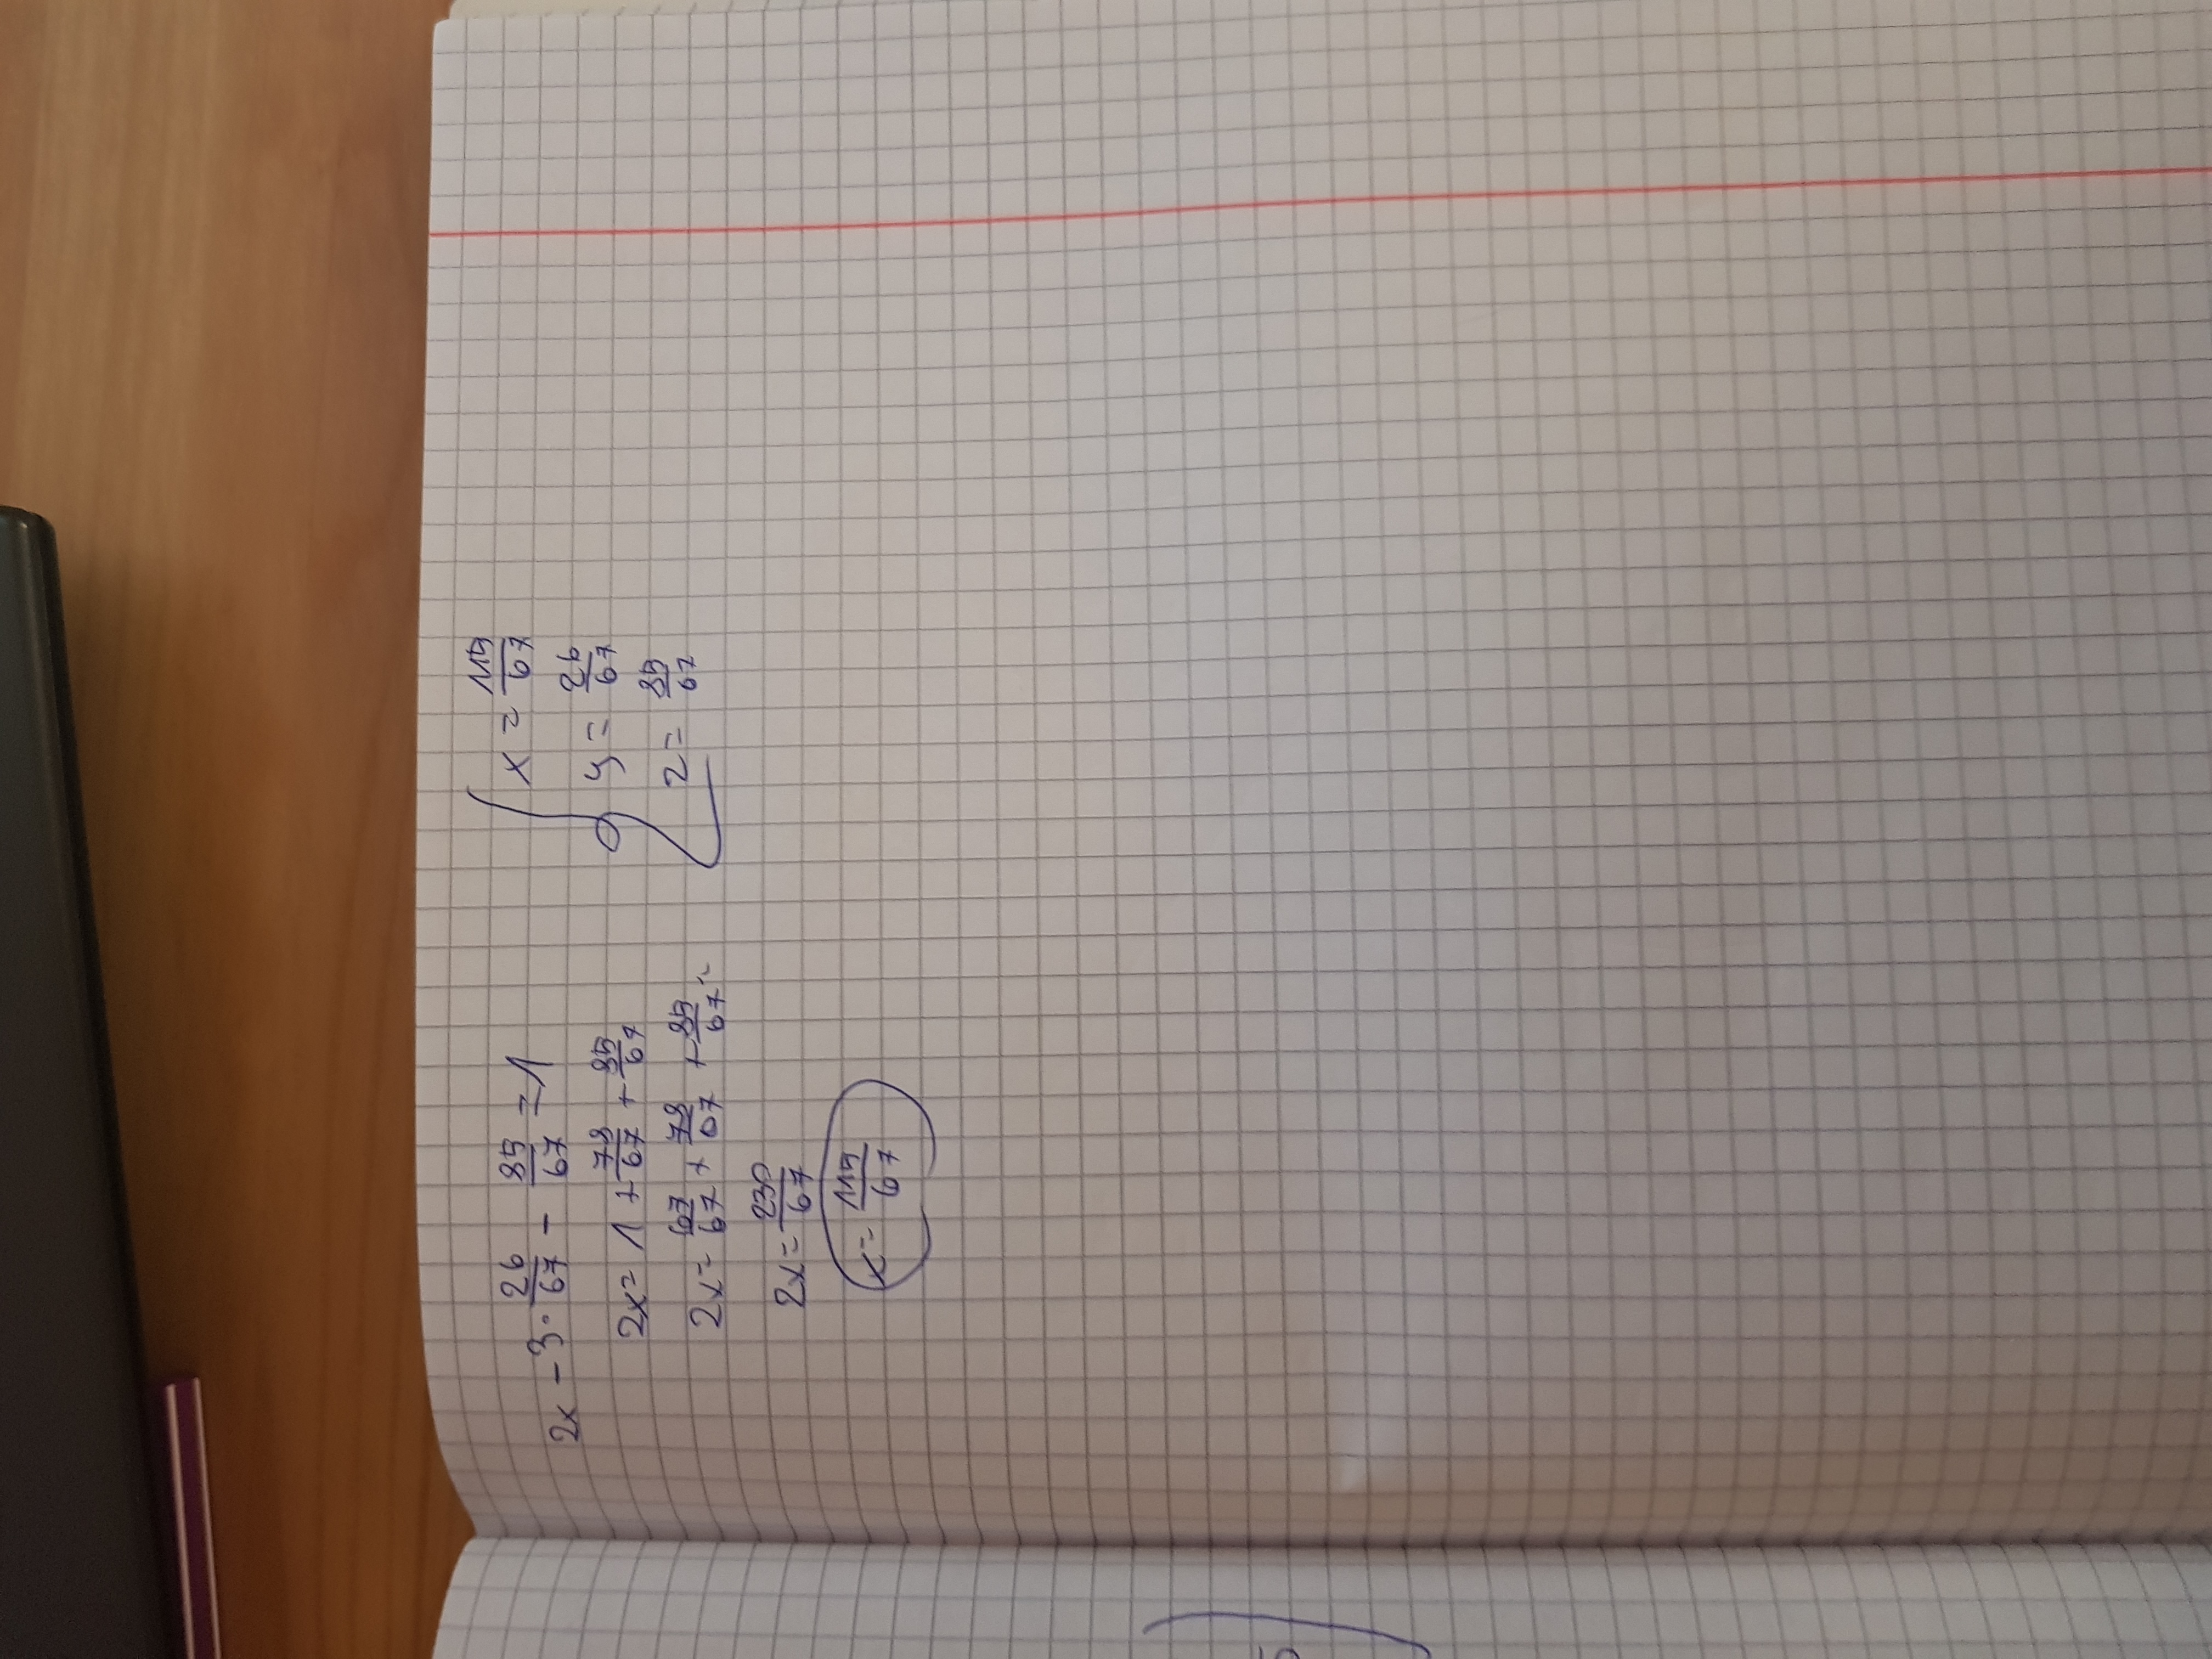 2x - 3 · 26/67 - 85/67 = 1
2x = 1 + 78/67 + 85/67
2x = 67/67 + 78/67 + 85/67 =
2x = 230/67
x = 115/67
x = 115/67
y = 26/67
z = 85/67